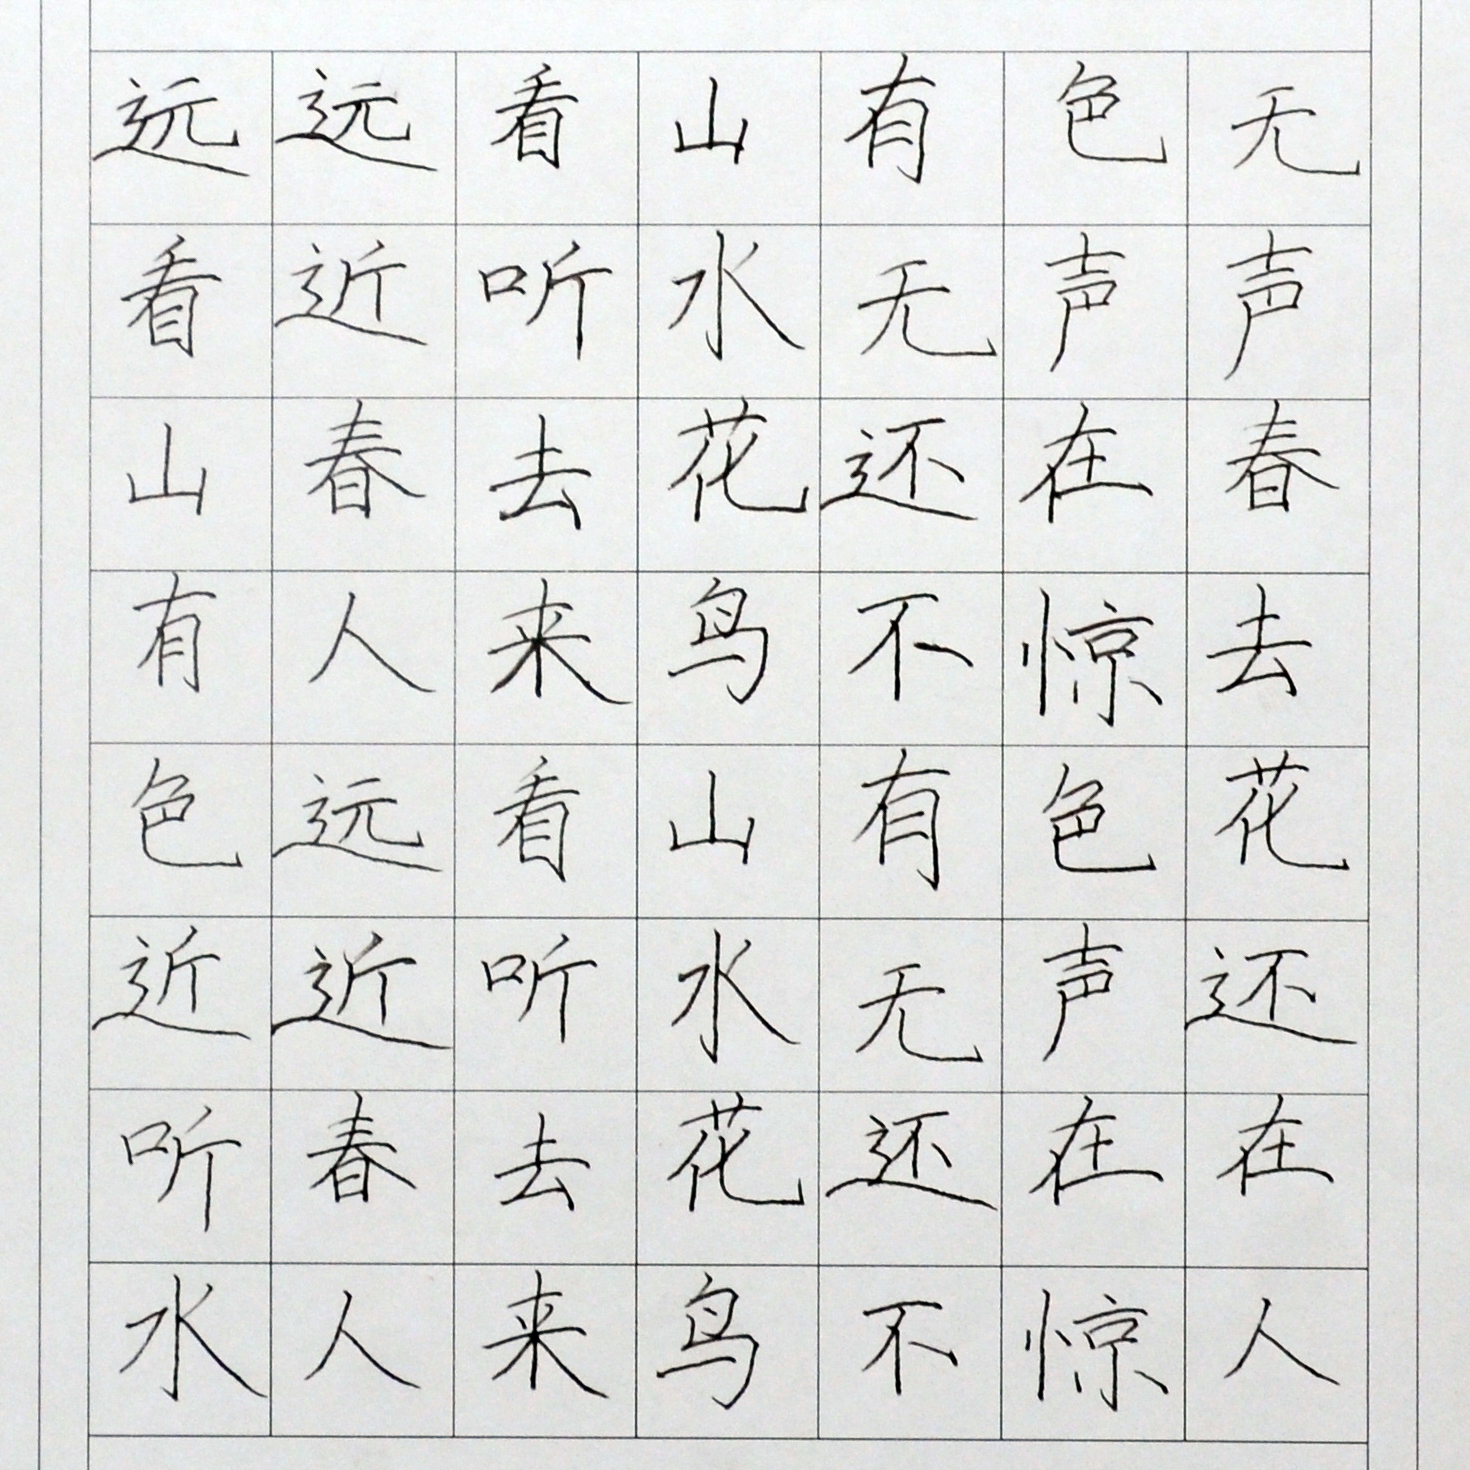 远远看山有色无
看近听水无声声
山春去花还在春
有人来鸟不惊去
色远看山有色花
近近听水无声还
听春去花还在在
水人来鸟不惊人